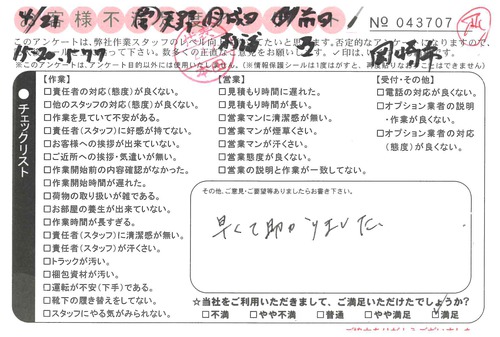 No 043707
このアンケートは、弊社作業スタッフのレベル向上
【作業】
□責任者の対応(態度)が良くない。
□他のスタッフの対応(態度)が良くない。
□作業を見ていて不安がある。
□責任者(スタッフ)に好感が持てない。
□お客様への挨拶が出来ていない。
□ご近所への挨拶・気遣いが無い。
□作業開始前の内容確認がなかった。
□作業開始時間が遅れた。
□荷物の取り扱いが雑である。
□お部屋の養生が出来ていない。
□作業時間が長すぎる。
□責任者(スタッフ)に清潔感が無い。
□責任者(スタッフ)が汗くさい。
□トラックが汚い。
□梱包資材が汚い。
□運転が不安(下手)である。
□靴下の履き替えをしてない。
□スタッフにやる気がみられない。
【営業】
□見積もり時間に遅れた。
□見積もり時間が長い。
□営業マンに清潔感が無い。
□営業マンが煙草くさい。
□営業マンが汗くさい。
□営業態度が良くない。
□営業の説明と作業が一致してない。
【受付・その他】
□電話の対応が良くない。
□オプション業者の説明
・作業が良くない。
□オプション業者の対応
(態度)が良くない。
チェックリスト
その他、ご意見・ご要望等ありましたらお書き下さい。
早くて助かりました
☆当社をご利用いただきまして、ご満足いただけたでしょうか?
□不満 □やや不満 □普通 □やや満足 □満足